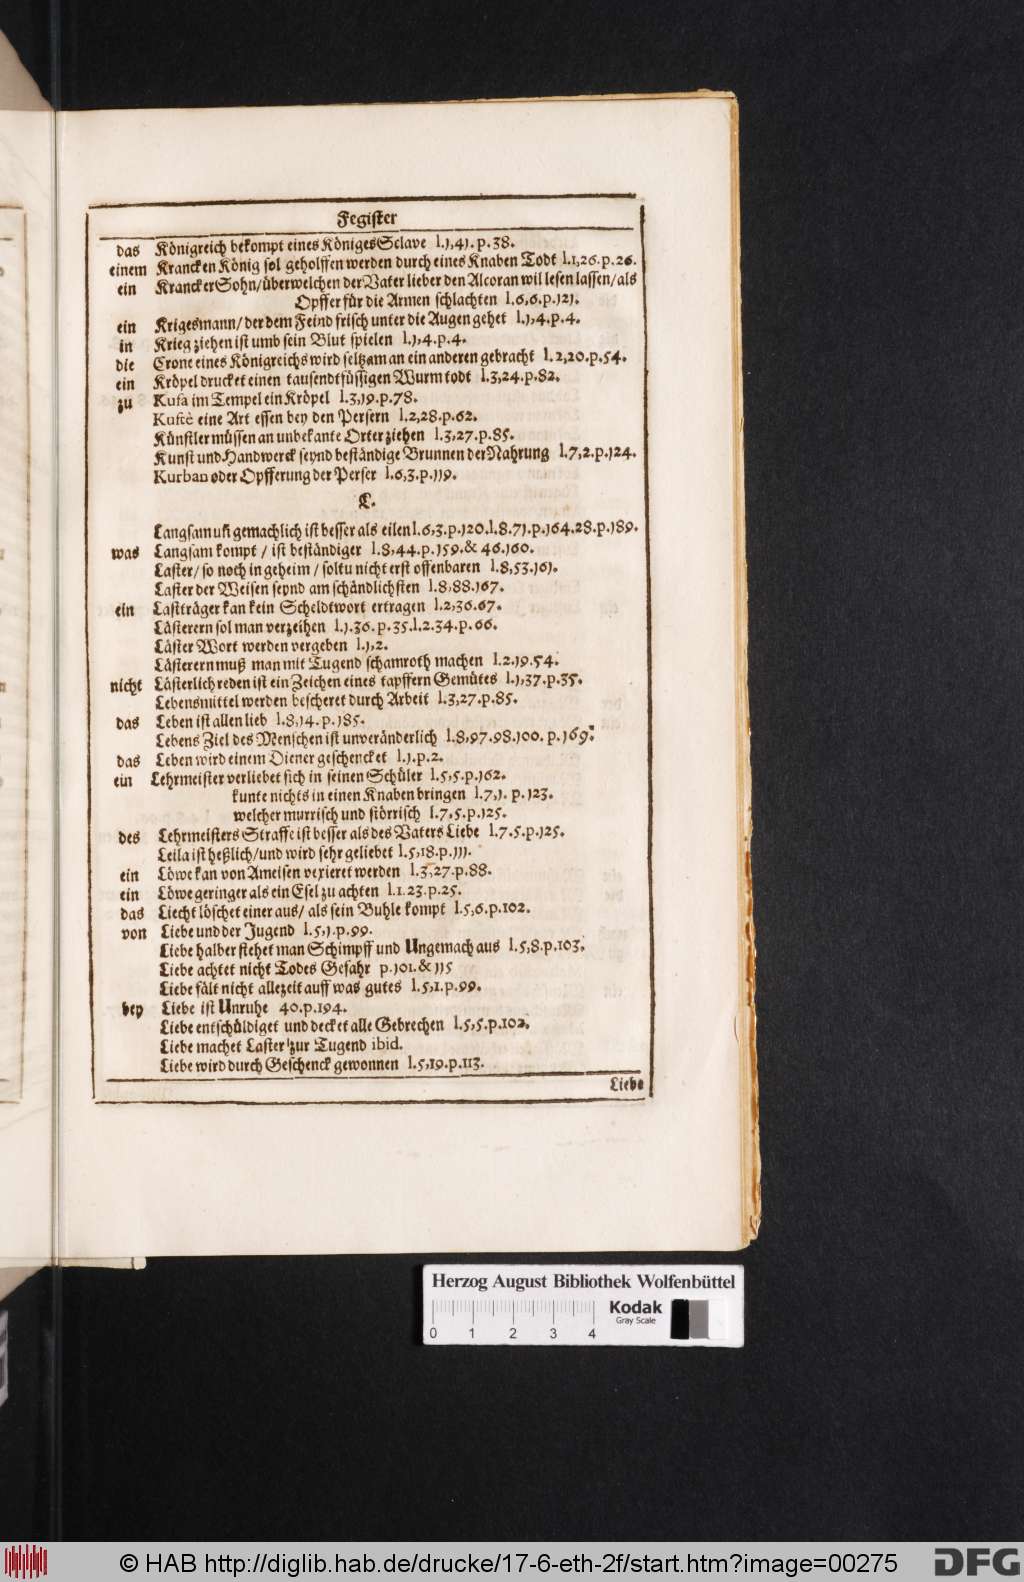 Fegister
das Königreich bekompt eines Königes Sclave l.1,41.p.38.
einem Krancken König sol geholffen werden durch eines Knaben Todt l.1,26.p.26.
ein Krancker Sohn/ überwelchen der Vater lieber den Alcoran wil lesen lassen/ als
Opffer für die Armen schlachten l.6,6.p.121.
ein Krigesmann/ der dem Feind frisch unter die Augen gehet l.1,4.p.4.
in Krieg ziehen ist umb sein Blut spielen l.1,4.p.4.
die Crone eines Königreichs wird seltzam an ein anderen gebracht l.2,20.p.54.
ein Kröpel drucket einen tausendtfüssigen Wurm todt l.3,24.p.82.
zu Kufa im Tempel ein Kröpel l.3,19.p.78.
Kuftè eine Art essen bey den Persern l.2,28.p.62.
Künstler müssen an unbekante Orter ziehen l.3,27.p.85.
Kunst und Handwerck seynd beständige Brunnen der Nahrung l.7,2.p.124.
Kurban oder Opfferung der Perser l.6,3.p.119.
L.
Langsam uñ gemachlich ist besser als eilen l.6,3.p.120.l.8.71.p.164.28.p.189.
was Langsam kompt / ist beständiger l.8,44.p.159.& 46.160.
Laster/ so noch in geheim / soltu nicht erst offenbaren l.8,53.161.
Laster der Weisen seynd am schändlichsten l.8,88.167.
ein Lastträger kan kein Scheldtwort ertragen l.2,36.67.
Lästerern sol man verzeihen l.1.36.p.35.l.2.34.p.66.
Läster Wort werden vergeben l.1,2.
Lästerern muß man mit Tugend schamroth machen l.2.19.54.
nicht Lästerlich reden ist ein Zeichen eines tapffern Gemütes l.1,37.p.35.
Lebensmittel werden bescheret durch Arbeit l.3,27.p.85.
das Leben ist allen lieb l.8,14.p.185.
Lebens Ziel des Menschen ist unveränderlich l.8,97.98.100. p.169.
das Leben wird einem Diener geschencket l.1.p.2.
ein Lehrmeister verliebet sich in seinen Schüler l.5,5.p.162.
kunte nichts in einen Knaben bringen l.7,1. p.123.
welcher murrisch und störrisch l.7,5.p.125.
des Lehrmeisters Straffe ist besser als des Vaters Liebe l.7.5.p.125.
Leila ist heßlich/ und wird sehr geliebet l.5,18.p.111.
ein Löwe kan von Ameisen vexieret werden l.3,27.p.88.
ein Löwe geringer als ein Esel zu achten l.1.23.p.25.
das Liecht löschet einer aus/ als sein Buhle kompt l.5,6.p.102.
von Liebe und der Jugend l.5,1.p.99.
Liebe halber stehet man Schimpff und Ungemach aus l.5,8.p.103.
Liebe achtet nicht Todes Gefahr p.101.& 115
Liebe fält nicht allezeit auff was gutes l.5,1.p.99.
bey Liebe ist Unruhe 40.p.194.
Liebe entschüldiget und decket alle Gebrechen l.5,5.p.102.
Liebe machet Laster zur Tugend ibid.
Liebe wird durch Geschenck gewonnen l.5,19.p.113.
Liebe
Herzog August Bibliothek Wolfenbüttel
0 1 2 3 4
Kodak
Gray Scale
© HAB http://diglib.hab.de/drucke/17-6-eth-2f/start.htm?image=00275
DFG